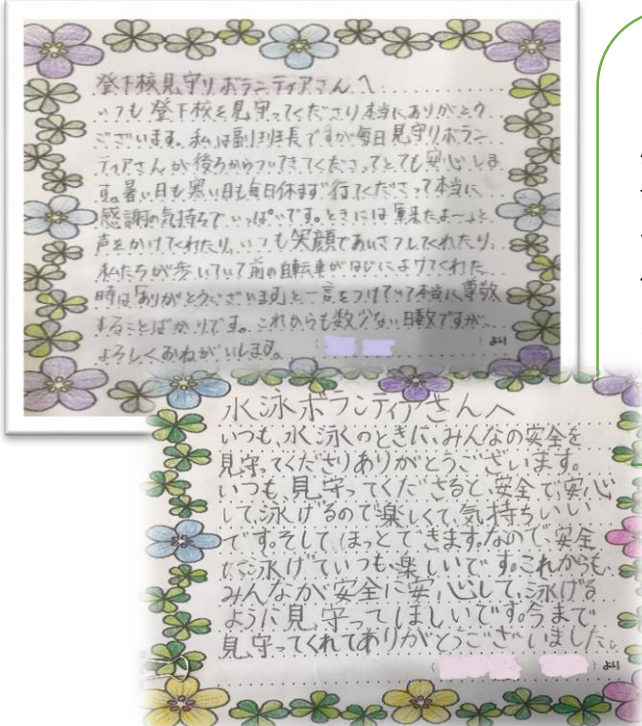 登下校見守りボランティアさんへ
いつも登下校を見守ってくださり本当にありがとう
ございます。私は副班長ですが毎日見守りボラン
ティアさんが後ろからついてきてくださってとても安心しま
す。暑い日も寒い日も毎日休まず行てくださって本当に
感謝の気持ちでいっぱいです。ときには「車来たよ〜」と
声をかけてくれたり、いつも笑顔であいさつしてくれたり、
私たちが歩いていて前の自転車がはじによけてくれた
時は「ありがとうございます」と一言をつけていて本当に尊敬
することばかりです。これからも数少ない日数ですが
よろしくおねがいします。
より
水泳ボランティアさんへ
いつも、水泳のときに、みんなの安全を
見守ってくださりありがとうございます。
いつも、見守ってくださると、安全で、安心
して、泳げるので楽しくて、気持ちいい
です。そして、ほっとできます。なので、安全
に泳げていつも楽しいです。これからも、
みんなが安全に安心して、泳げる
ように見守ってほしいです。今まで
見守ってくれてありがとうございました。
より